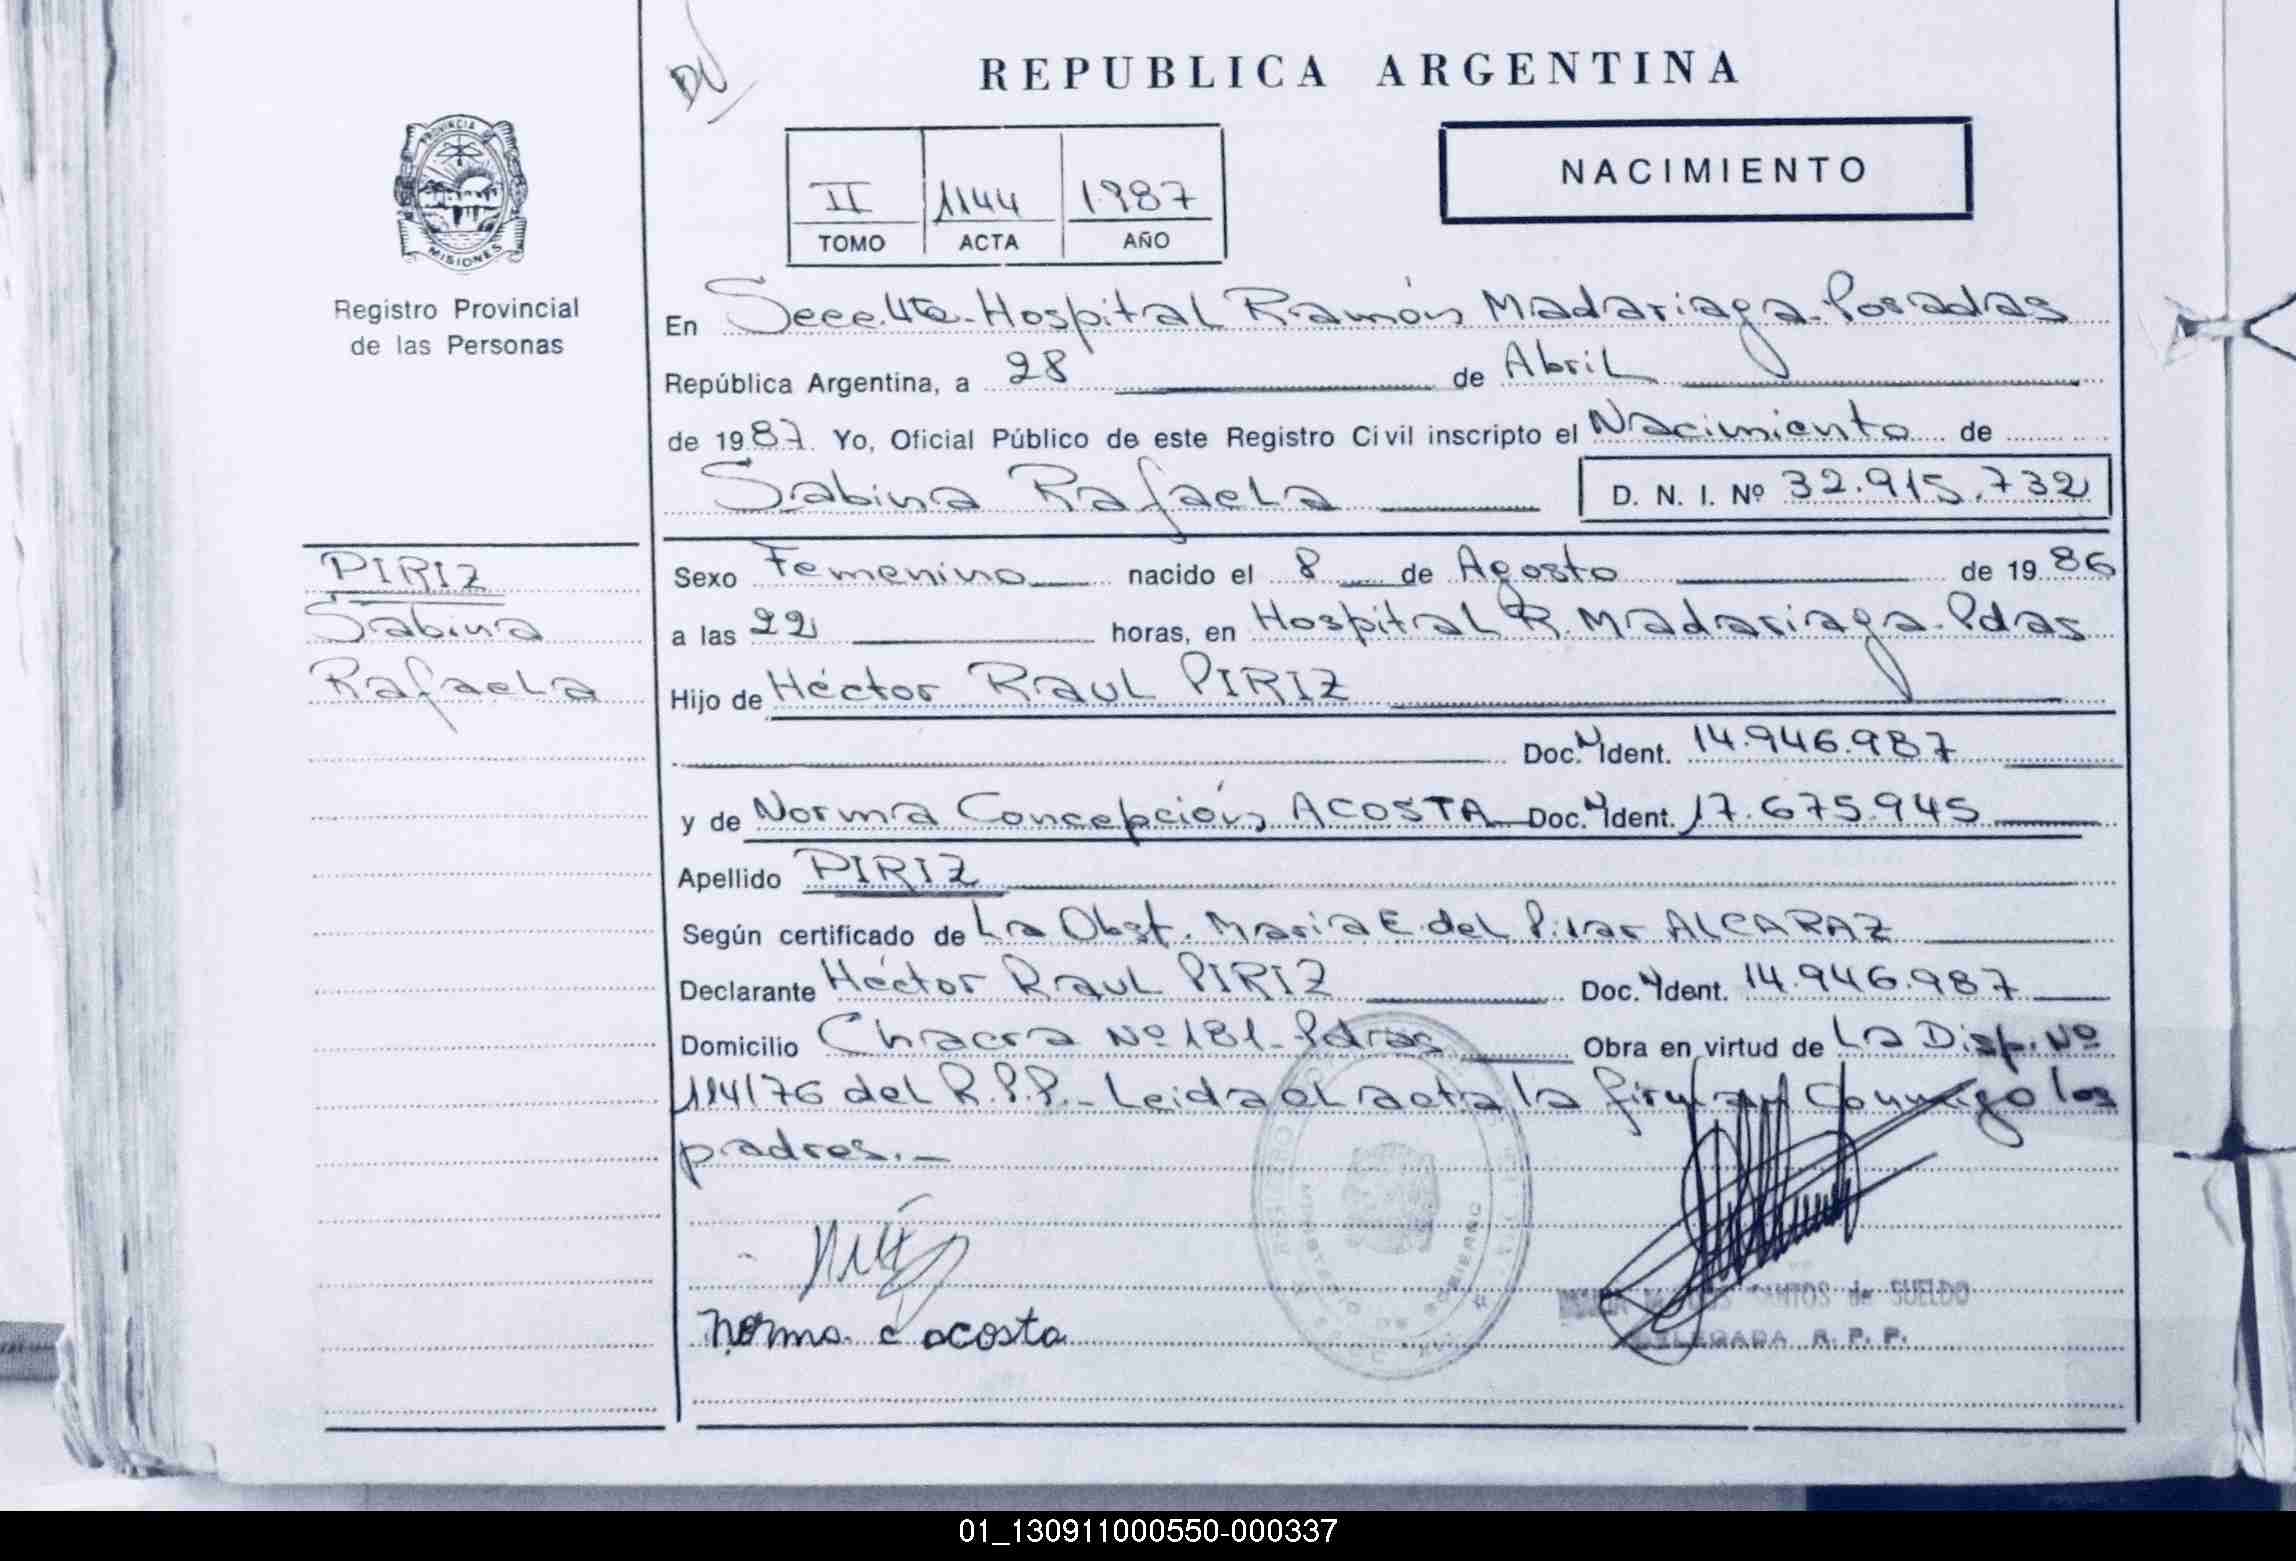 DU
REPUBLICA ARGENTINA
PROVINCIA
MISIONES
Registro Provincial
de las Personas
II 1144 1987
TOMO ACTA AÑO
NACIMIENTO
En Secc. 4ta. Hospital Ramón Madariaga. Posadas
República Argentina, a 28 de Abril
de 1987. Yo, Oficial Público de este Registro Civil inscripto el Nacimiento de
Sabina Rafaela D. N. I. Nº 32.915.732
PIRIZ
Sabina
Rafaela
Sexo Femenino nacido el 8 de Agosto de 1986
a las 22 horas, en Hospital R. Madariaga. Pdas
Hijo de Héctor Raul PIRIZ
Doc. N Ident. 14.946.987
y de Norma Concepción ACOSTA Doc. N Ident. 17.675.945
Apellido PIRIZ
Según certificado de La Obst. Maria E. del Pilar ALCARAZ
Declarante Héctor Raul PIRIZ Doc. N Ident. 14.946.987
Domicilio Chacra Nº 181- Pdas Obra en virtud de La Disp. Nº
114/76 del R.P.P.- Leida el acta la firman conmigo los
padres.-
norma c acosta
SANTOS de SUELDO
DELEGADA R. P. P.
01_130911000550-000337